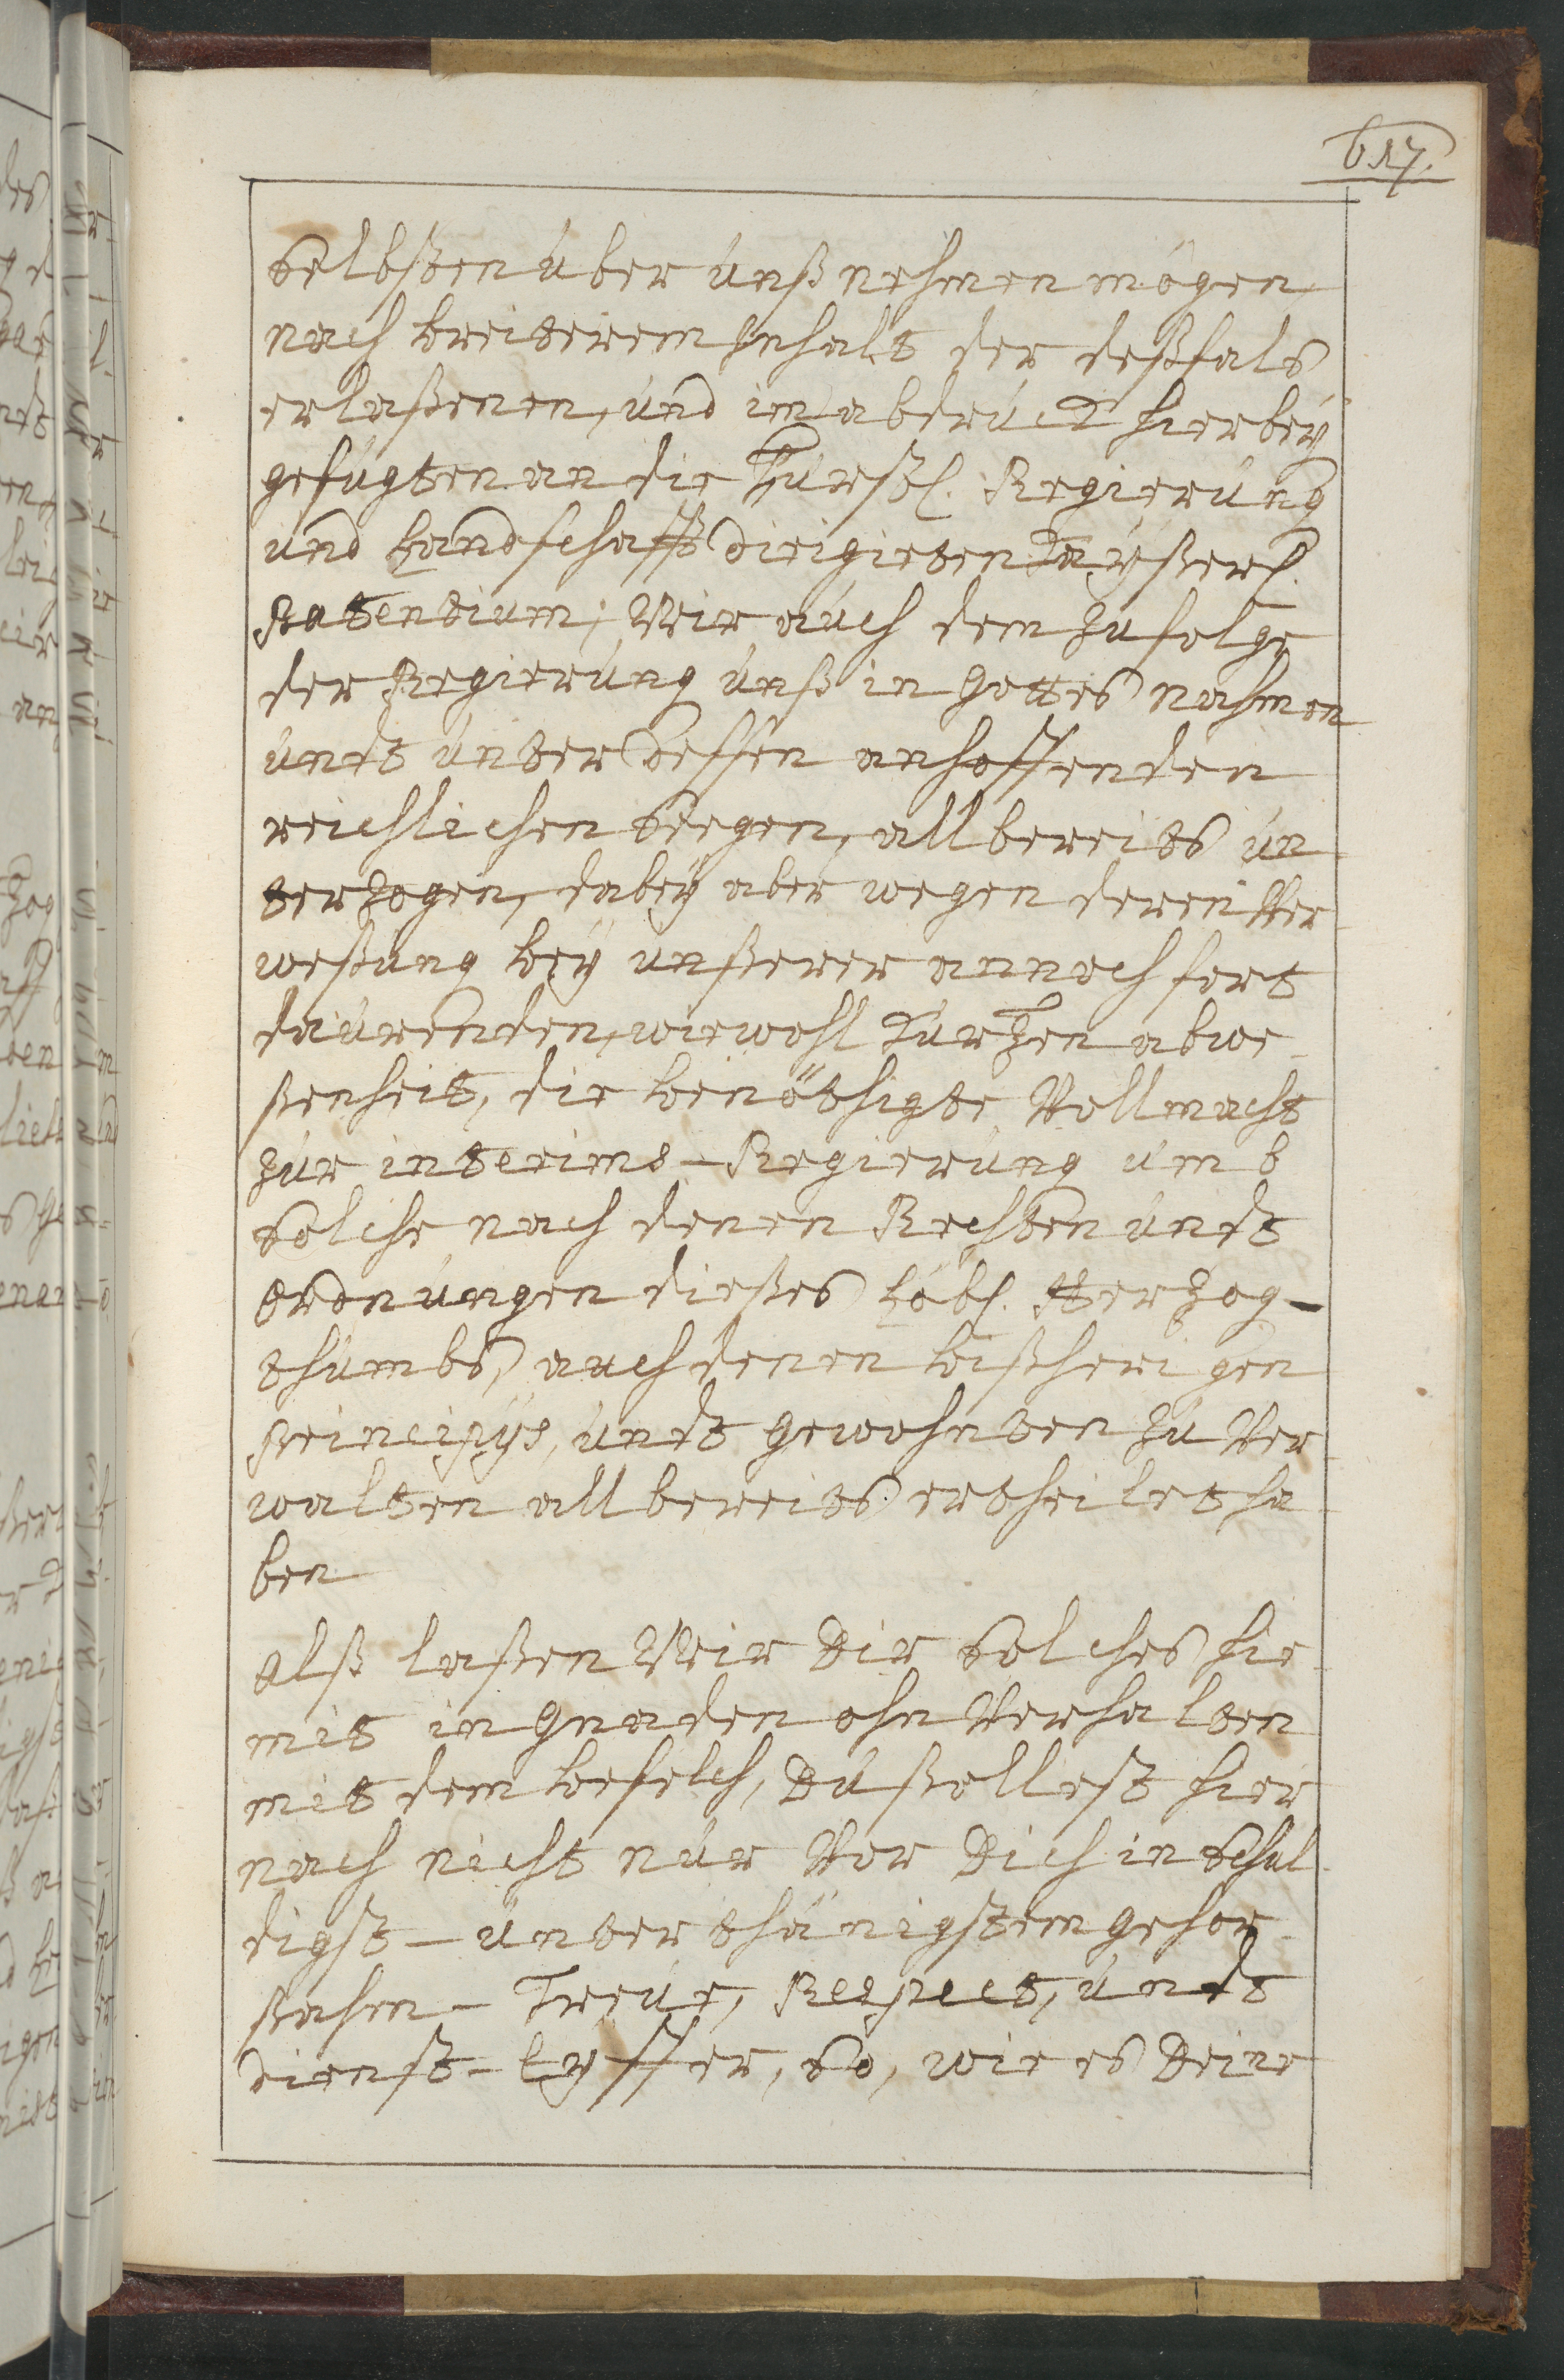 617.
Selbsten über unß nehmen mögen,
nach breiterem Inhalt der deßfals
erlaßenen, und im abdruck hierbey
gefügten an die Fürstl. Regierung
und Landschafft dirigirten Kayßerl.
Patentium; Wir auch dem zufolge
der Regierung unß in Gottes nahmen
undt unter deßen anhoffenden
reichlichen Seegen, allbereits un
terzogen, dabey aber wegen deren Ver
weßung bey unßerer annoch fort
daurenden, wiewohl kurtzen abwe-
ßenheit, die benöthigte Vollmacht
zur interims-Regierung umb
Solche nach denen Rechten undt
Ordnungen dießes Löbl. Herzog-
thumbs, auch denen bißherigen
Principys, undt gewohnten zu Ver
walten allbereits ertheilet ha
ben
Alß laßen Wir Dir Solches hie
mit in Gnaden ohn Verhalten
mit dem befelch, Du ßollest hier
nach nicht nur Vor Dich in Schul
digst-unterthänigstem gehor
ßahm-Treue, Respect, undt
dienst-Eyffer, So, wie es Deine